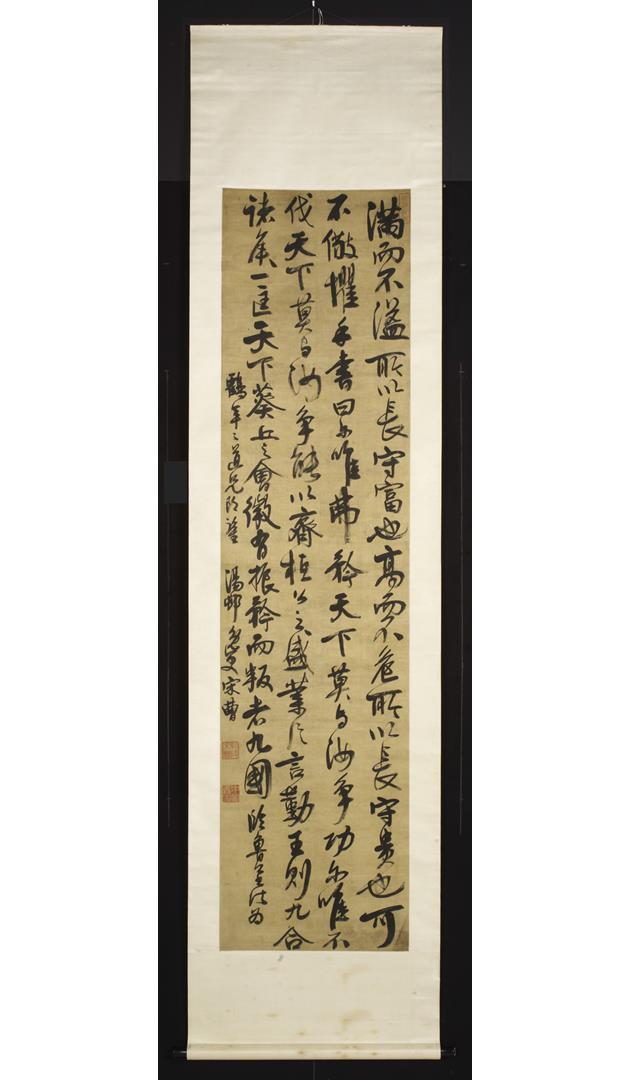 滿而不溢所以長守富也高而不危所以長守貴也可
不儆懼乎書曰尔唯弗矜天下莫与汝争功尔唯不
伐天下莫与汝争能以齊桓公之盛業片言勤王則九合
諸侯一匡天下葵丘之會微有振矜而叛者九國臨魯公法為
年道兄 湯邨逸史宋曹